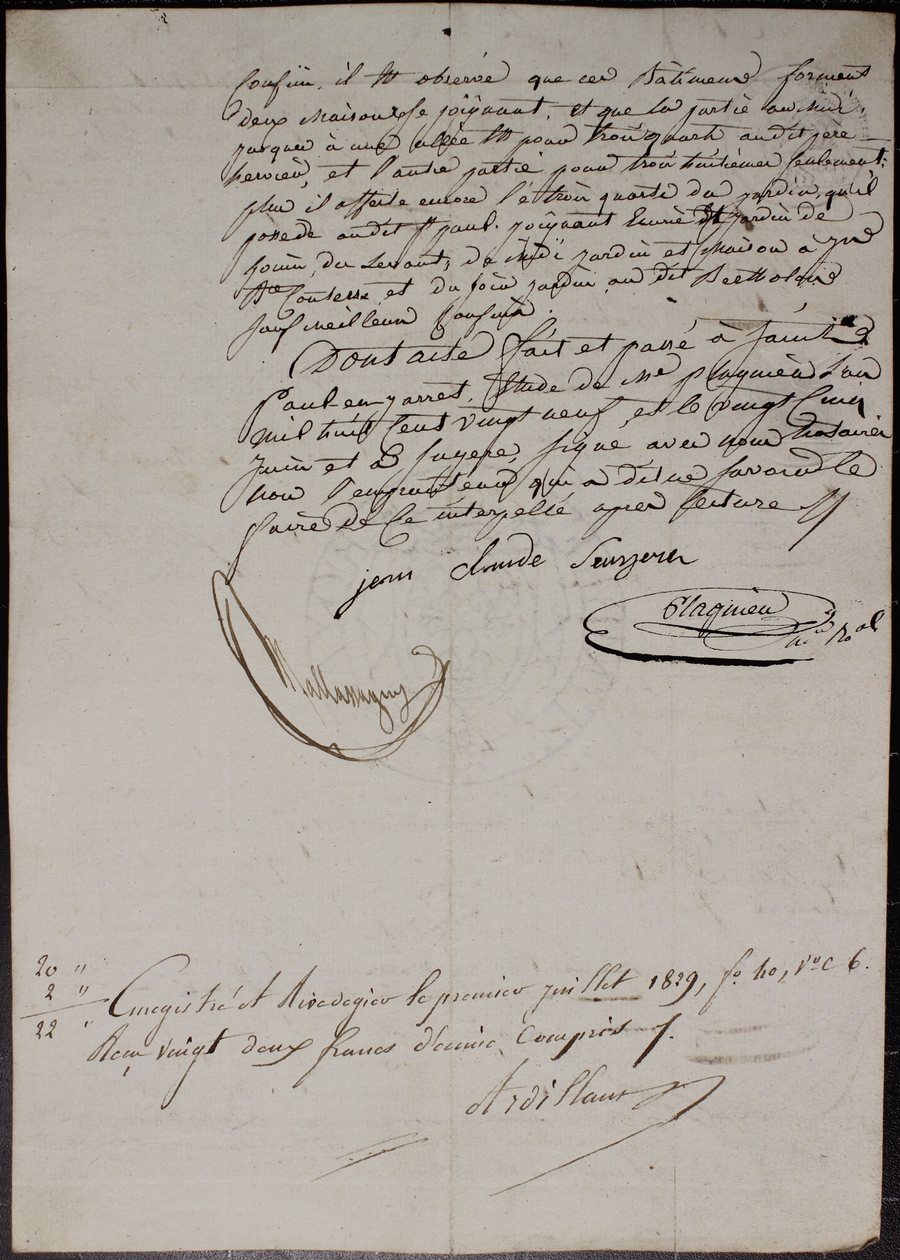 Confin, il est observé que ces Batiments forment
deux Maisons se joignant, et que la partie au Midi
jusques à une allée est pour trois quarts audit pere
hervier, et l'autre partie pour trois huitièmes seulement.
plus il affecte encore les trois quarts du jardin, qu'il
possede audit St paul. joignant Ecurie et jardin de
Souin, du Levant, du Midi jardin et Maison à
et du soir jardin au dit Berthollon
sauf meilleurs Confins.
Dont acte fait et passé à Saint
Paul-en-jarret, Etude de Me Plagnieu L'an
mil huit Cent vingt neuf, et le vingt Cinq
Juin et a Signé avec nous Notaires
non l'emprunteur qui a dit ne savoir le
faire de Ce interpellé après lecture //
jean claude
Plagnieu
Mallassagny
20 "
2 "
22 "
Enregistré à Rivedegier le premier juillet 1829, fo. 40, Vo. C 6.
Reçu vingt deux francs décime Compris /.
Ardillon